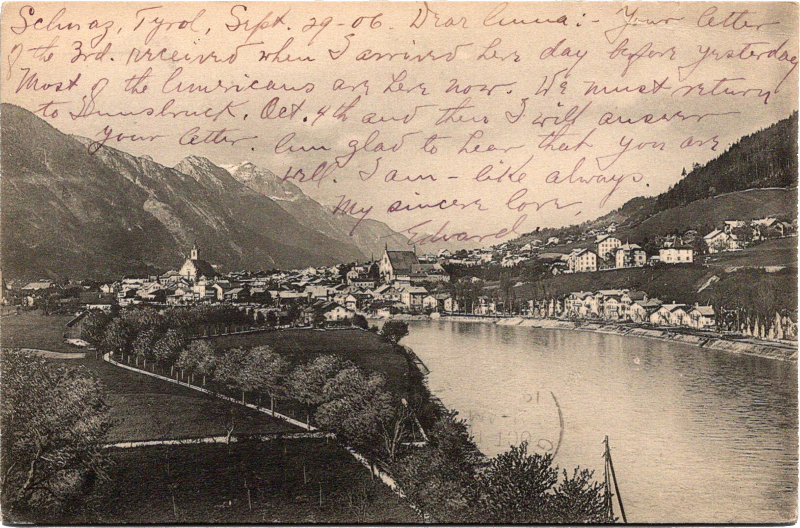 Schwaz, Tyrol, Sept. 29-06. Dear Anna:- Your letter
of the 3rd. received when I arrived here day before yesterday
Most of the Americans are here now. We must return
to Innsbruck, Oct. 4th and then I will answer
your letter. Am glad to hear that you are
well. I am - like always.
My sincere love,
Edward.
OCT